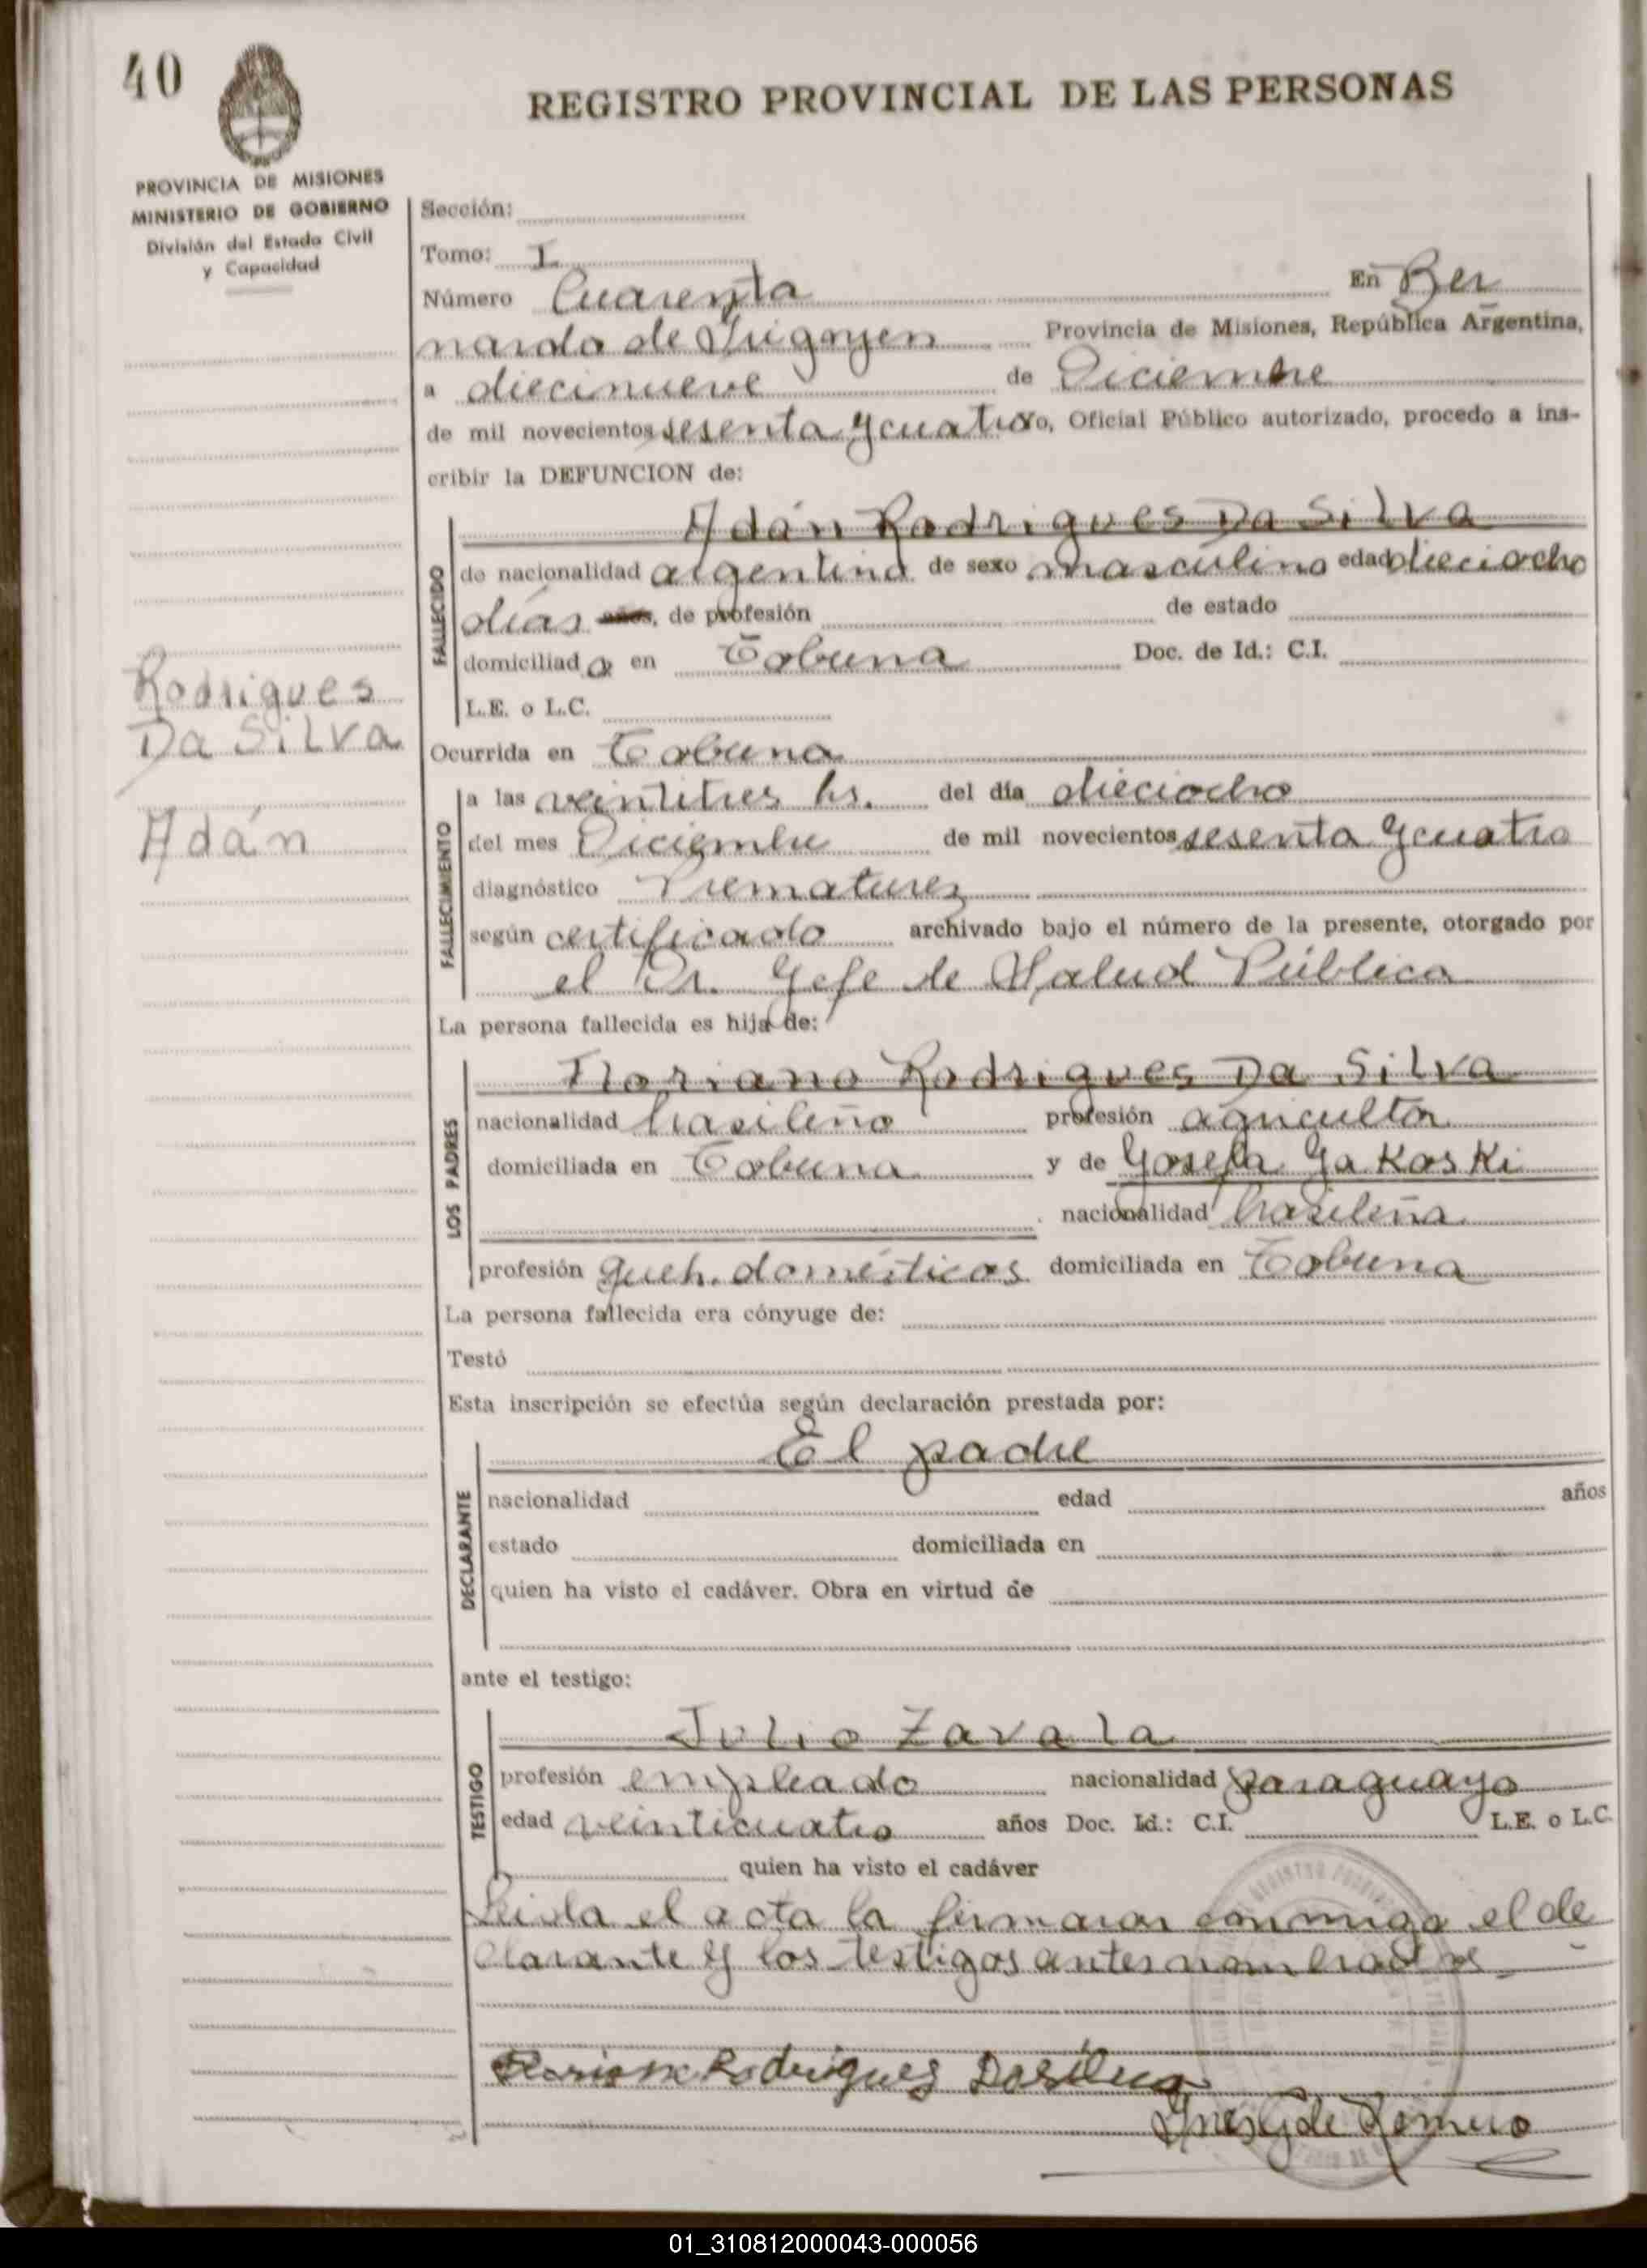 40
REGISTRO PROVINCIAL DE LAS PERSONAS
PROVINCIA DE MISIONES
MINISTERIO DE GOBIERNO
División del Estado Civil
y Capacidad
Sección:
Tomo: I
Número Cuarenta En Ber
nardo de Irigoyen Provincia de Misiones, República Argentina,
a diecinueve de Diciembre
de mil novecientos sesenta y cuatro, Oficial Público autorizado, procedo a ins-
cribir la DEFUNCION de:
Adán Rodrigues Da Silva
FALLECIDO
de nacionalidad argentina de sexo masculino edad dieciocho
días años, de profesión de estado
domiciliado en Tobuna Doc. de Id.: C.I.
L.E. o L.C.
Rodrigues
Da Silva
Adán
Ocurrida en Tobuna
FALLECIMIENTO
a las veintitres hs. del día dieciocho
del mes Diciembre de mil novecientos sesenta y cuatro
diagnóstico Prematurez
según certificado archivado bajo el número de la presente, otorgado por
el Dr. Gefe de Salud Pública
La persona fallecida es hija de:
LOS PADRES
Floriano Rodrigues Da Silva
nacionalidad brasileño profesión agricultor
domiciliada en Tobuna y de Yosefa Ya Kos Ki
nacionalidad brasileña
profesión queh. domésticos domiciliada en Tobuna
La persona fallecida era cónyuge de:
Testó
Esta inscripción se efectúa según declaración prestada por:
El padre
DECLARANTE
nacionalidad edad años
estado domiciliada en
quien ha visto el cadáver. Obra en virtud de
ante el testigo:
Julio Zavala
TESTIGO
profesión empleado nacionalidad paraguayo
edad veinticuatro años Doc. Id.: C.I. L.E. o L.C.
quien ha visto el cadáver
Leida el acta la firmaron conmigo el de
clarante y los testigos antes nombrados
Floriano Rodrigues Dasilva
de Romero
01_310812000043-000056